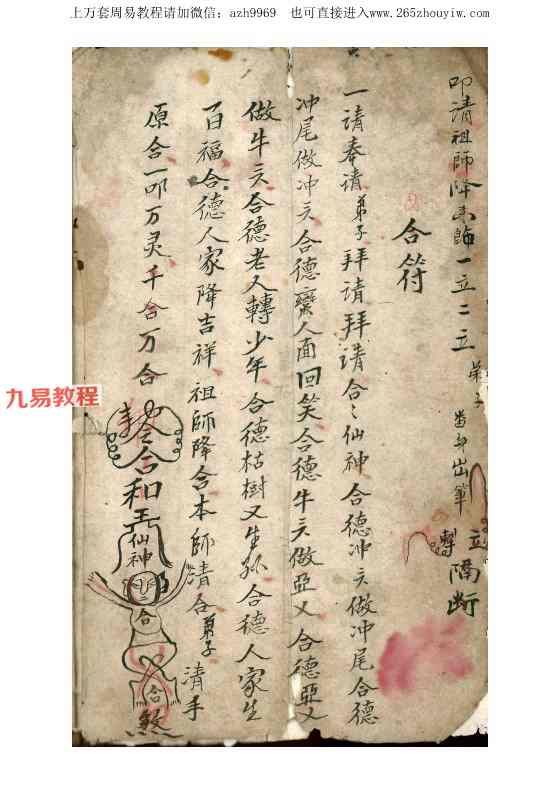 上万套周易教程请加微信：azh9969 也可直接进入www.265zhouyiw.com
叩請祖師降来臨一立二立
弟子
出筆
立
隔断
合符
一請奉请弟子拜请拜请合〻仙神合德冲头做冲尾合德
冲尾做冲头合德 人面回笑合德牛头做亞乂合德亞乂
做牛头合德老人轉少年合德枯樹又生 合德人家生
百福合德人家降吉祥祖師降合本師请合弟子请手
原合一叩万灵千合万合
九易教程
合和
仙神
合
合
煞